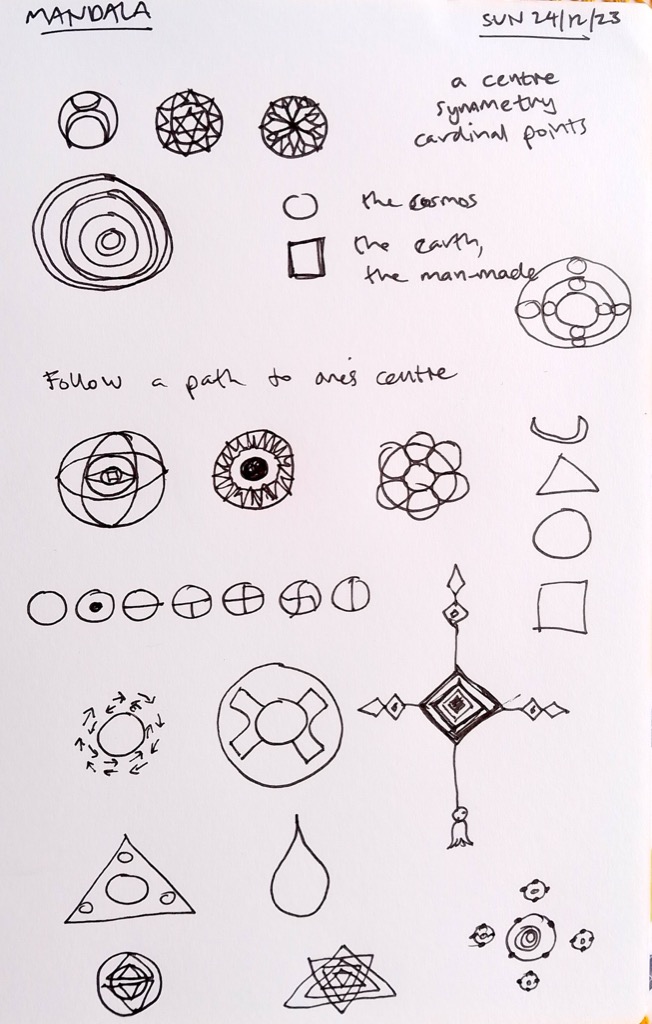 MANDALA
SUN 24/12/23
a centre
symmetry
cardinal points
the cosmos
the earth,
the man-made
Follow a path to one's centre